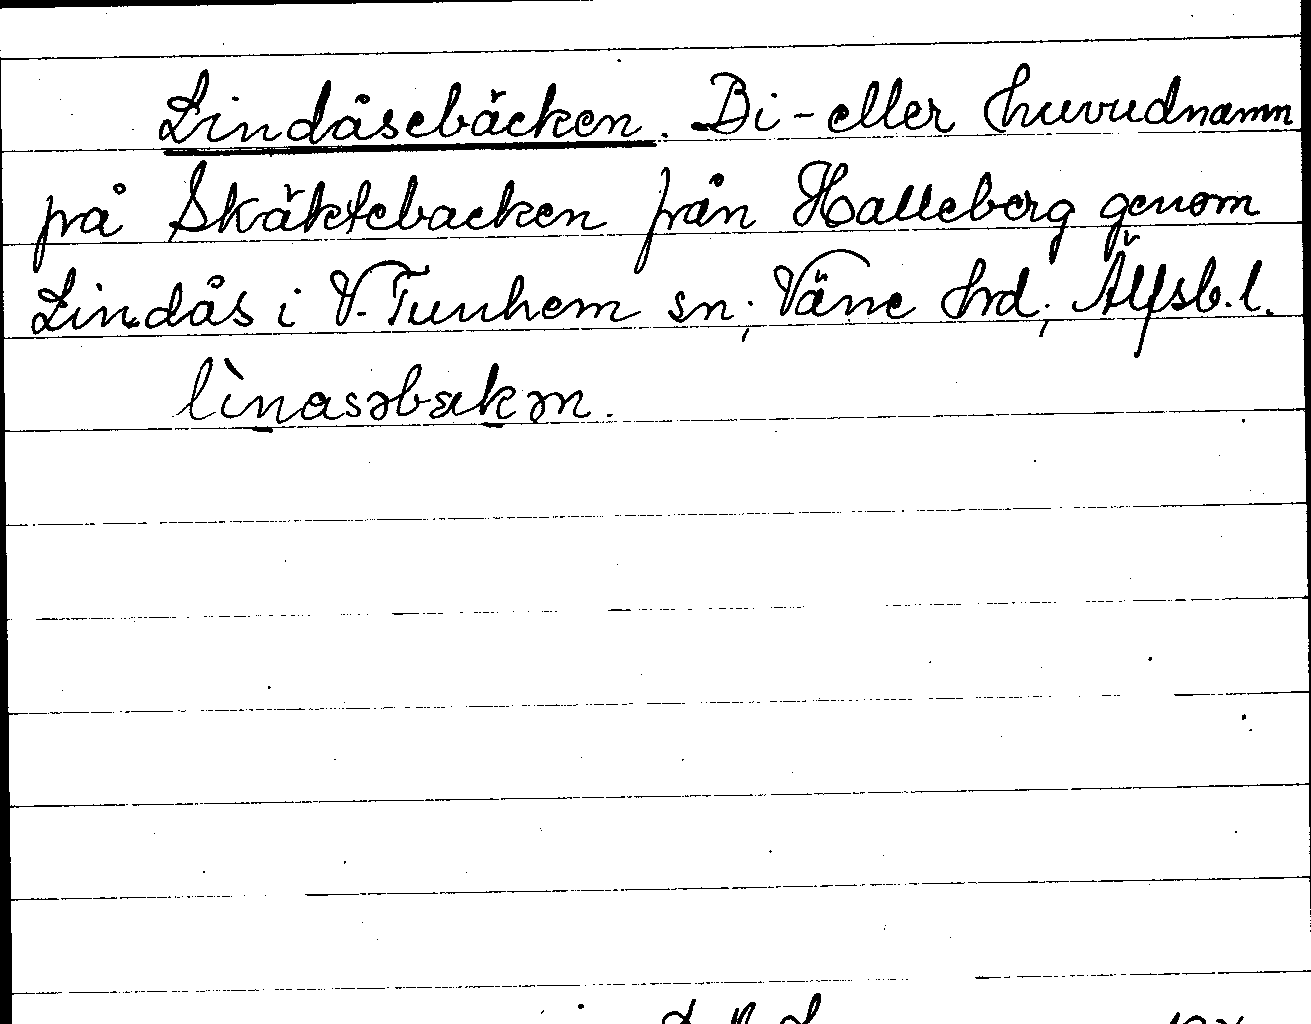 Lindåsebäcken. Bi- eller huvudnamn
på Skäktebacken från Halleberg genom
Lindås i V. Tunhem sn; Väne hrd; Älfsb. l.
lìnasəbækən.